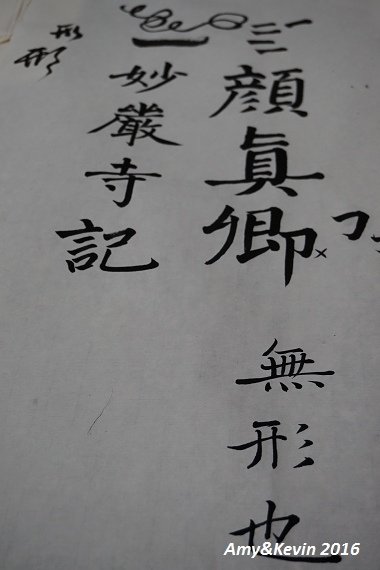 顏真卿
無形也
妙嚴寺記
形
形
Amy&Kevin 2016